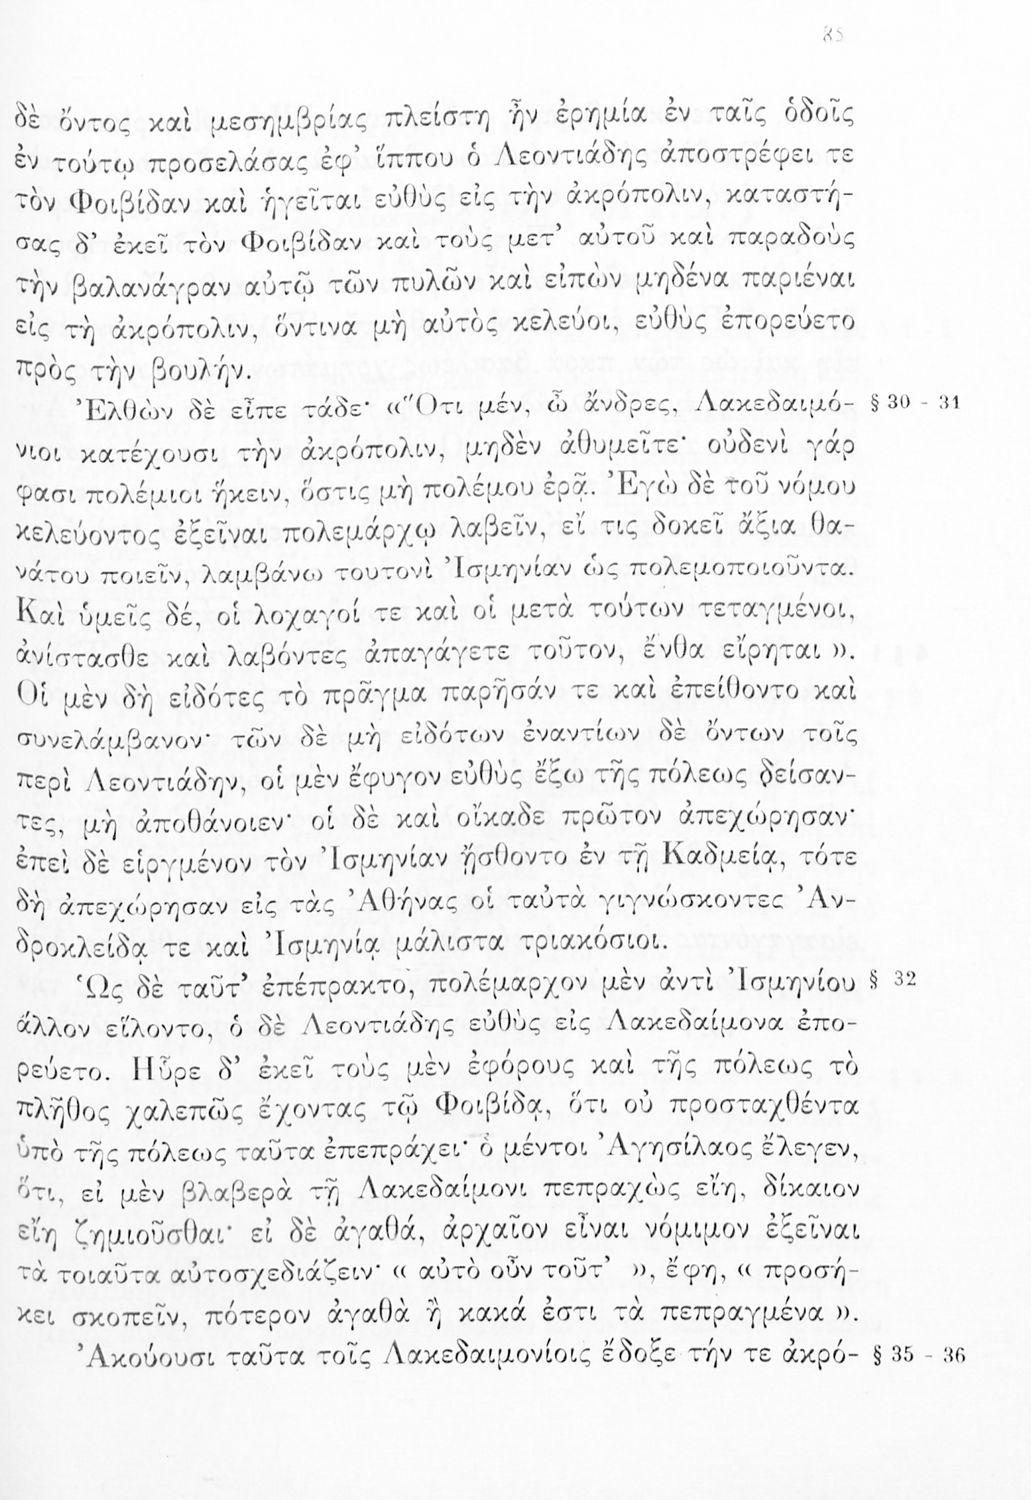 85
δὲ ὄντος καὶ μεσημβρίας πλείστη ἦν ἐρημία ἐν ταῖς ὁδοῖς
ἐν τούτῳ προσελάσας ἐφ' ἵππου ὁ Λεοντιάδης ἀποστρέφει τε
τὸν Φοιβίδαν καὶ ἡγεῖται εὐθὺς εἰς τὴν ἀκρόπολιν, καταστή-
σας δ' ἐκεῖ τὸν Φοιβίδαν καὶ τοὺς μετ' αὐτοῦ καὶ παραδοὺς
τὴν βαλανάγραν αὐτῷ τῶν πυλῶν καὶ εἰπὼν μηδένα παριέναι
εἰς τὴ ἀκρόπολιν, ὅντινα μὴ αὐτὸς κελεύοι, εὐθὺς ἐπορεύετο
πρὸς τὴν βουλήν.
Ἐλθὼν δὲ εἶπε τάδε· «Ὅτι μέν, ὦ ἄνδρες, Λακεδαιμό- § 30 - 31
νιοι κατέχουσι τὴν ἀκρόπολιν, μηδὲν ἀθυμεῖτε· οὐδενὶ γάρ
φασι πολέμιοι ἥκειν, ὅστις μὴ πολέμου ἐρᾷ. Ἐγὼ δὲ τοῦ νόμου
κελεύοντος ἐξεῖναι πολεμάρχῳ λαβεῖν, εἴ τις δοκεῖ ἄξια θα-
νάτου ποιεῖν, λαμβάνω τουτονὶ Ἰσμηνίαν ὡς πολεμοποιοῦντα.
Καὶ ὑμεῖς δέ, οἱ λοχαγοί τε καὶ οἱ μετὰ τούτων τεταγμένοι,
ἀνίστασθε καὶ λαβόντες ἀπαγάγετε τοῦτον, ἔνθα εἴρηται ».
Οἱ μὲν δὴ εἰδότες τὸ πρᾶγμα παρῆσάν τε καὶ ἐπείθοντο καὶ
συνελάμβανον· τῶν δὲ μὴ εἰδότων ἐναντίων δὲ ὄντων τοῖς
περὶ Λεοντιάδην, οἱ μὲν ἔφυγον εὐθὺς ἔξω τῆς πόλεως δείσαν-
τες, μὴ ἀποθάνοιεν· οἱ δὲ καὶ οἴκαδε πρῶτον ἀπεχώρησαν·
ἐπεὶ δὲ εἱργμένον τὸν Ἰσμηνίαν ᾔσθοντο ἐν τῇ Καδμείᾳ, τότε
δὴ ἀπεχώρησαν εἰς τὰς Ἀθήνας οἱ ταὐτὰ γιγνώσκοντες Ἀν-
δροκλείδᾳ τε καὶ Ἰσμηνίᾳ μάλιστα τριακόσιοι.
Ὡς δὲ ταῦτ' ἐπέπρακτο, πολέμαρχον μὲν ἀντὶ Ἰσμηνίου § 32
ἄλλον εἵλοντο, ὁ δὲ Λεοντιάδης εὐθὺς εἰς Λακεδαίμονα ἐπο-
ρεύετο. Ηὗρε δ' ἐκεῖ τοὺς μὲν ἐφόρους καὶ τῆς πόλεως τὸ
πλῆθος χαλεπῶς ἔχοντας τῷ Φοιβίδᾳ, ὅτι οὐ προσταχθέντα
ὑπὸ τῆς πόλεως ταῦτα ἐπεπράχει· ὁ μέντοι Ἀγησίλαος ἔλεγεν,
ὅτι, εἰ μὲν βλαβερὰ τῇ Λακεδαίμονι πεπραχὼς εἴη, δίκαιον
εἴη ζημιοῦσθαι· εἰ δὲ ἀγαθά, ἀρχαῖον εἶναι νόμιμον ἐξεῖναι
τὰ τοιαῦτα αὐτοσχεδιάζειν· « αὐτὸ οὖν τοῦτ' », ἔφη, « προσή-
κει σκοπεῖν, πότερον ἀγαθὰ ἢ κακά ἐστι τὰ πεπραγμένα ».
Ἀκούουσι ταῦτα τοῖς Λακεδαιμονίοις ἔδοξε τήν τε ἀκρό- § 35 - 36